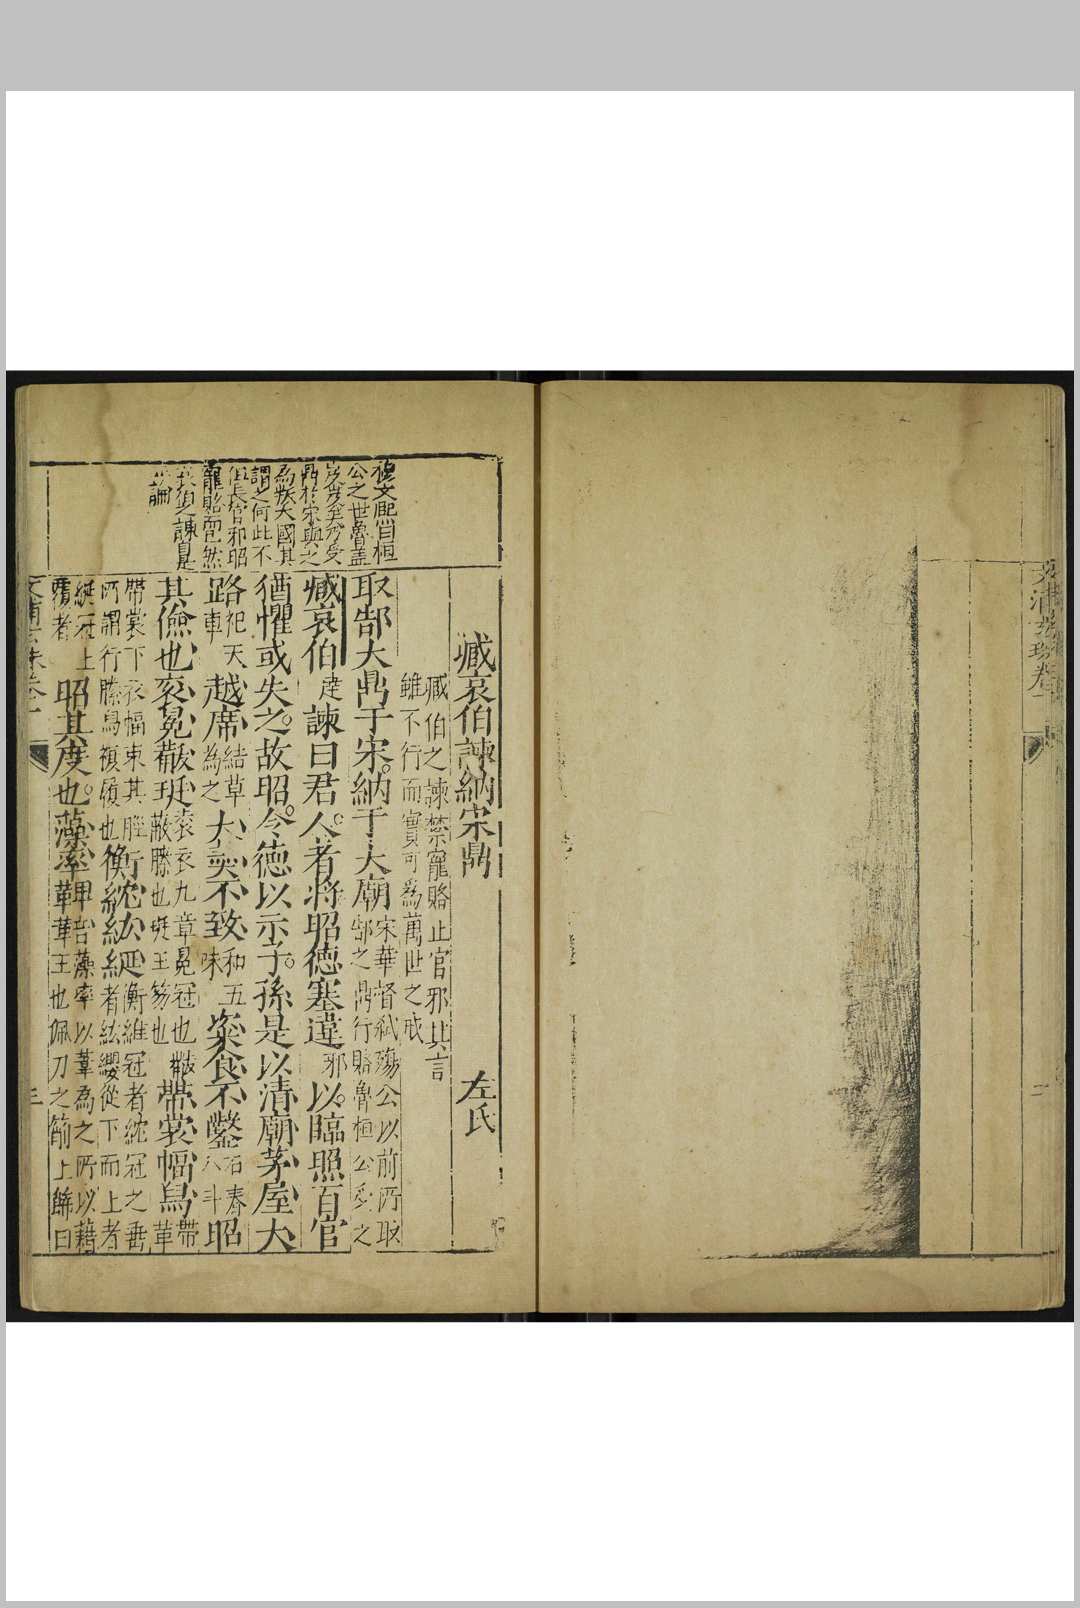 臧哀伯諫納宋鼎
左氏
臧伯之諫禁寵賂止官邪其言
雖不行而實可爲萬世之戒
取郜大鼎于宋納于大廟宋華督弑殤公以前所取
郜之鼎行賂魯桓公受之
臧哀伯達諫曰君人者將昭德塞違邪以臨照百官
猶懼或失之故昭令德以示子孫是以清廟茅屋大
路祀天車越席結草為之大羹不致和五味粢食不鑿石舂八斗昭
其儉也袞冕黻珽袞衣九章冕冠也黻
蔽膝也珽王笏也帶裳幅舄帶革
帶裳下衣幅束其脛
所謂行縢舄複履也衡紞紘綖衡維冠者紞冠之垂
者紘纓從下而上者
綖冠上覆者昭其度也藻率鞞鞛藻率以韋為之所以藉
王也佩刀之
上飾曰
公之世魯蓋
鼎於宋與之
為大國其
謂之何此不
伯之諫是
論
文浦玄珠卷一
三
文浦玄珠卷
二